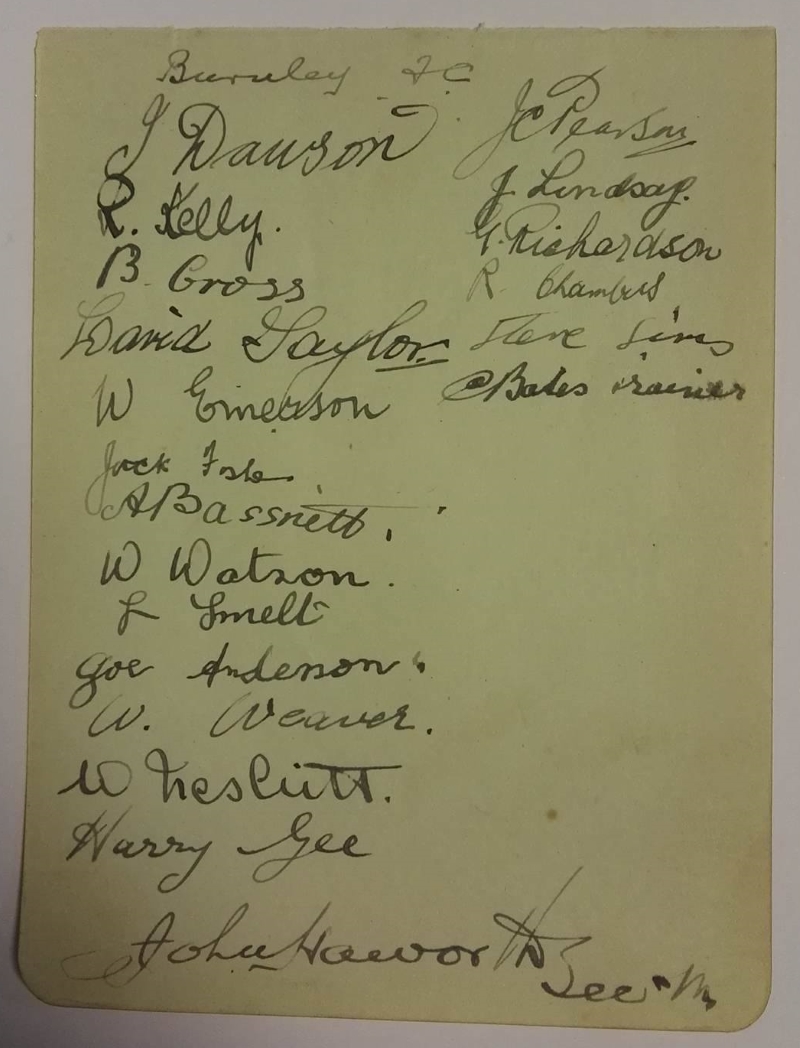 Burnley F C
J Dawson
R. Kelly.
B. Cross
David Taylor
W Emerson
Jack
A Bassnett.
W Watson.
L Smelt
Joe Anderson
W. Weaver.
W Nesbitt.
Harry Gee
John Haworth
Sec. M.
J C Pearson
J. Lindsay.
G. Richardson
R Chambers
Steve Sims
C Bates Trainer